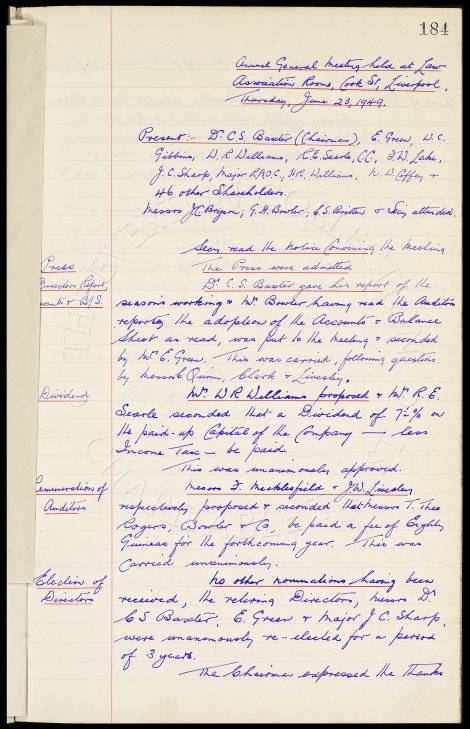 184
Annual General Meeting held at Law
Association Rooms, Cook St, Liverpool,
Thursday, June 23, 1949.
Present:- Dr C.S. Baxter (Chairman), E. Green, W.C.
Gibbins, W.R. Williams, R.E. Searle, C.C., J.W. Lake,
J.C. Sharp, Major H.R. Williams, N.W. Coffey &
46 other Shareholders.
Messrs J.C. Bryson, G.H. Bowler, C.S. & Secy attended.
Secy read the Notice Convening the Meeting
Press
The Press were admitted
Directors Report,
Dr C.S. Baxter gave his report of the
& B/S.
season's working & Mr. Bowler having read the Auditors
report, the adoption of the Accounts & Balance
Sheet as read, was put to the meeting & seconded
by Mr. E. Green. This was carried, following questions
by Messrs Quinn, Clark & Livesley.
Dividend
Mr. W R Williams proposed & Mr. R.E.
Searle seconded that a Dividend of 7½% on
the paid-up Capital of the Company — less
Income Tax — be paid.
This was unanimously approved.
Remuneration of
Messrs F. Micklesfield & J.W. Livesley
Auditors
respectively proposed & seconded that Messrs T. Theo
Rogers, Bowler & Co, be paid a fee of Eighty
Guineas for the forthcoming year. This was
carried unanimously.
Election of
No other nominations having been
Directors
received, the retiring Directors, Messrs Dr
C S Baxter, E. Green & Major J.C. Sharp,
were unanimously re-elected for a period
of 3 years.
The Chairman expressed the thanks